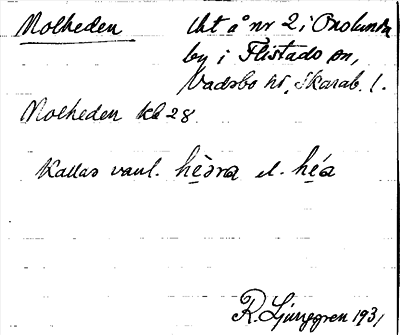 Molheden
tht å nr 2 i Onslunda
by i Flistads sn,
Vadsbo hd, Skarab. l.
Molheden kb 28
Kallas vanl. hèɘra el. héa
R. Ljunggren 1931